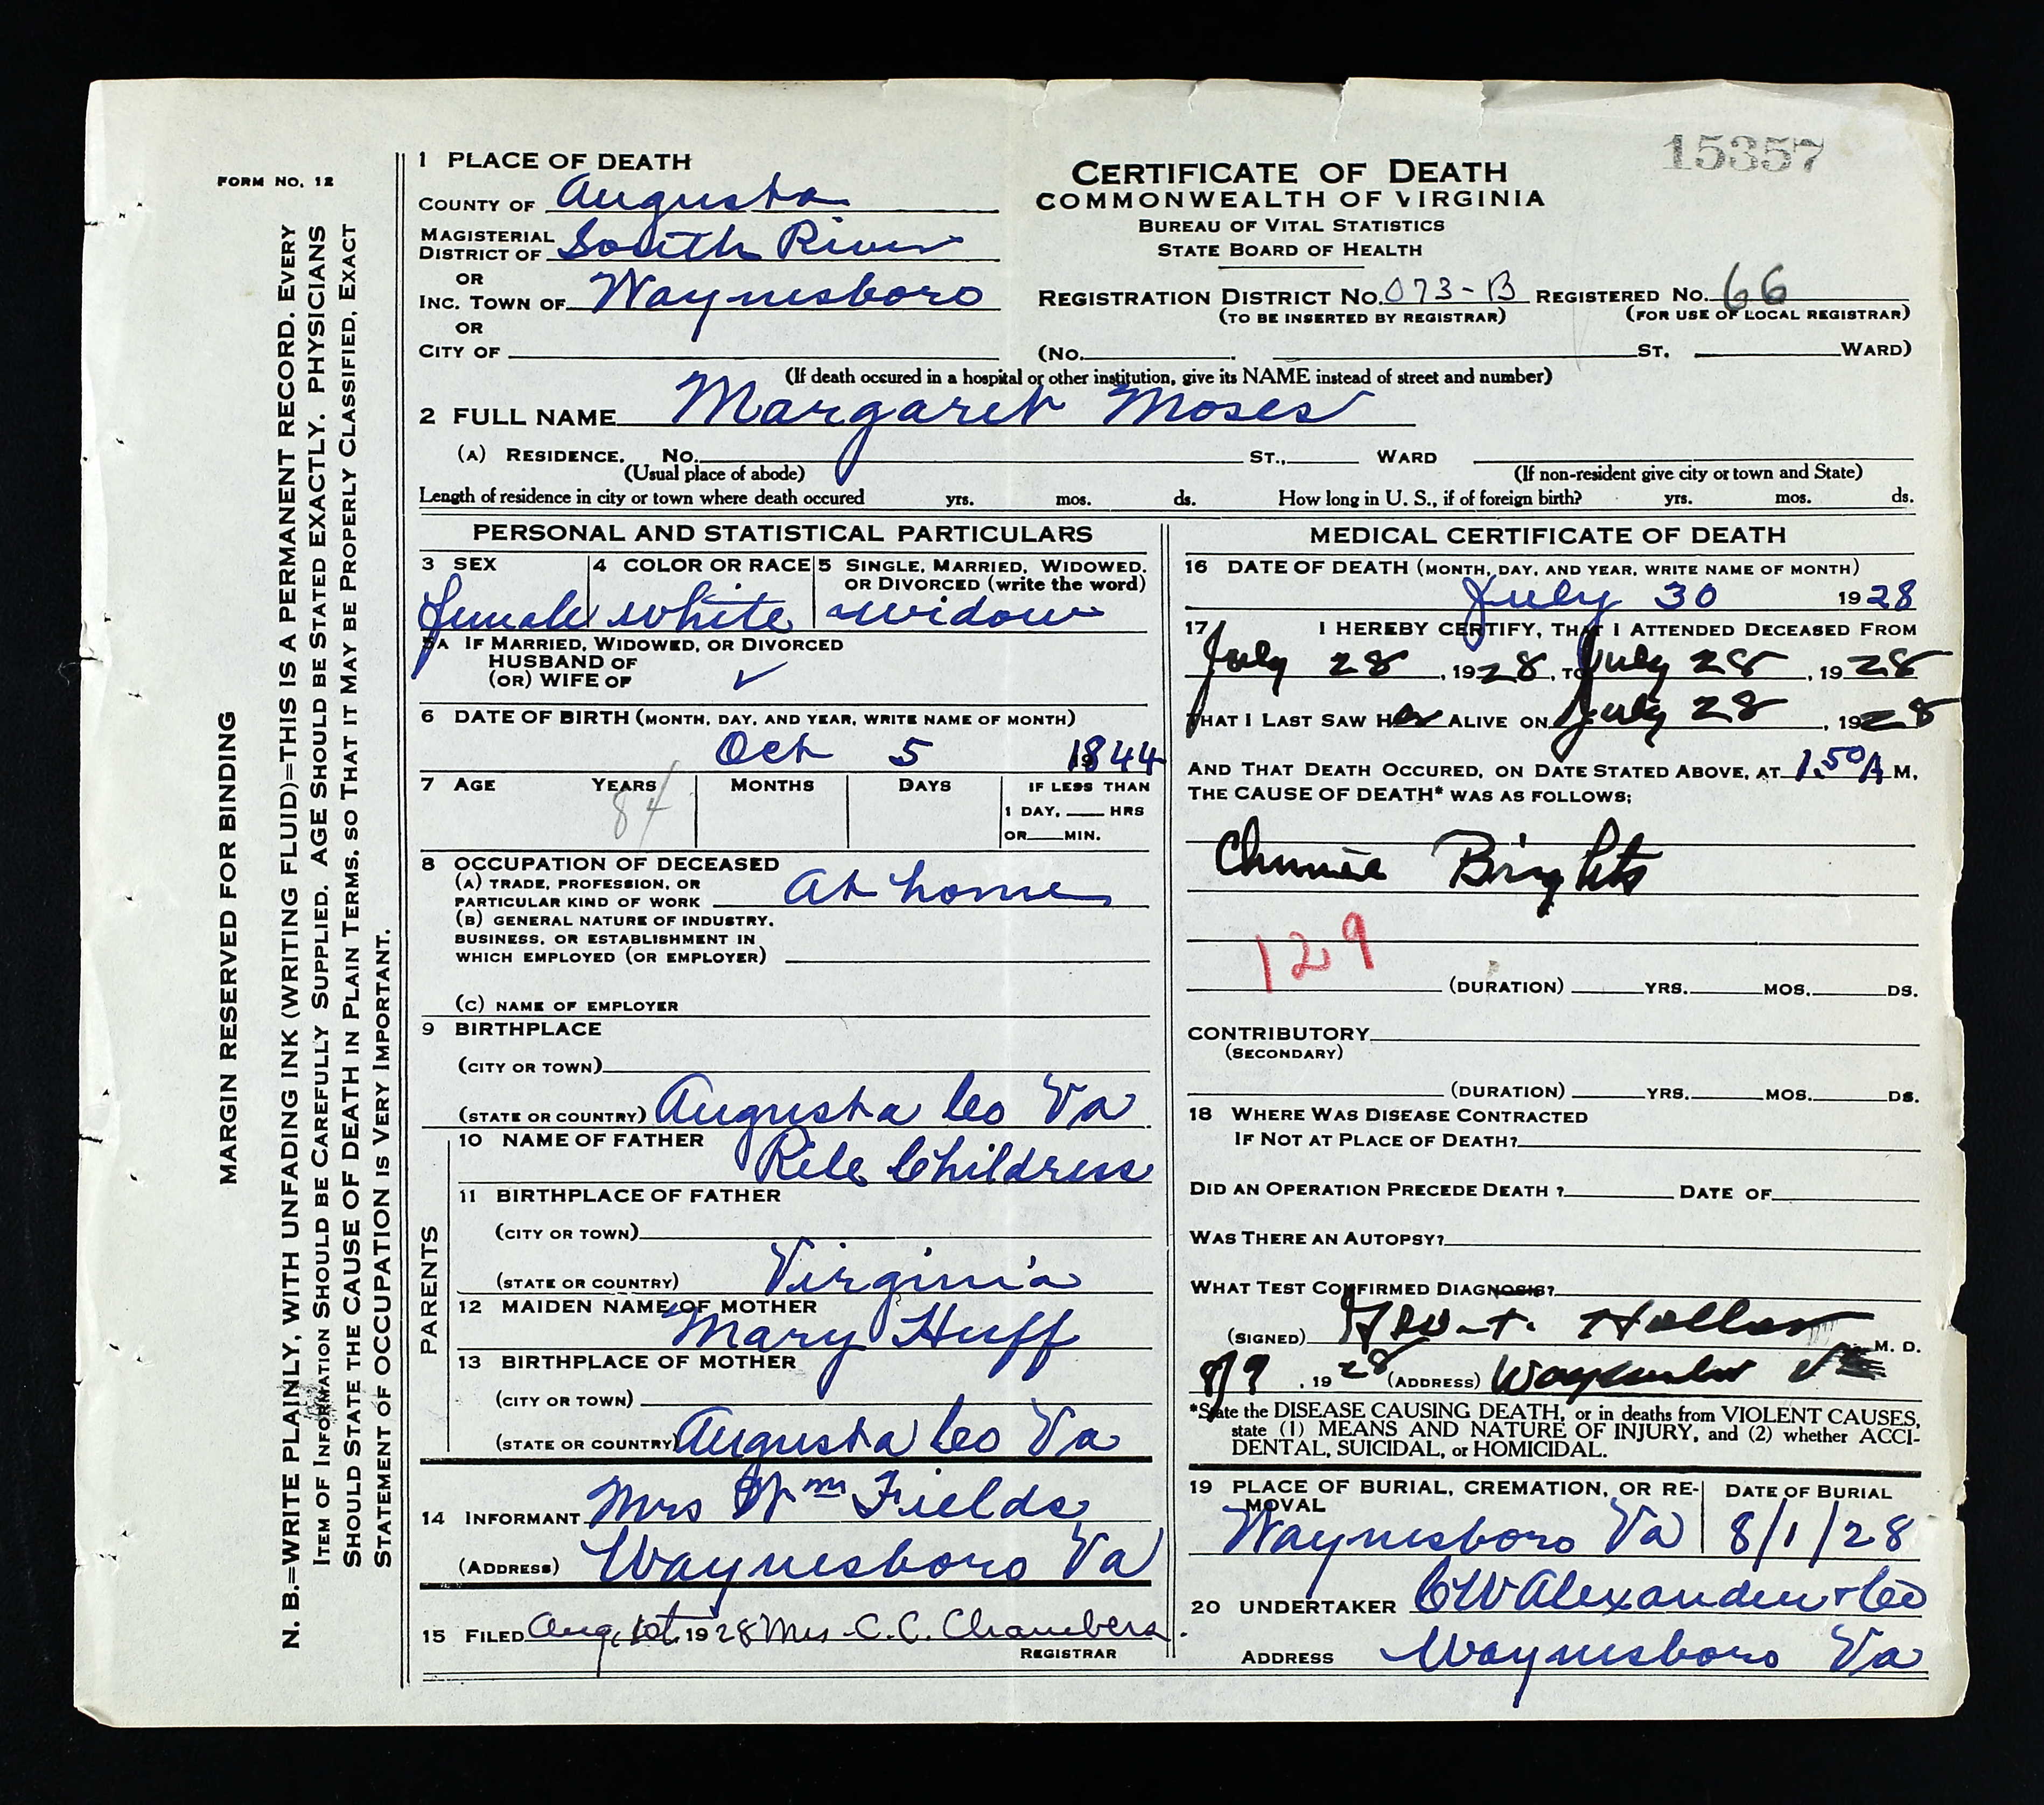 15357
FORM NO. 12
MARGIN RESERVED FOR BINDING
N. B.=WRITE PLAINLY, WITH UNFADING INK (WRITING FLUID)=THIS IS A PERMANENT RECORD. EVERY
ITEM OF INFORMATION SHOULD BE CAREFULLY SUPPLIED. AGE SHOULD BE STATED EXACTLY. PHYSICIANS
SHOULD STATE THE CAUSE OF DEATH IN PLAIN TERMS, SO THAT IT MAY BE PROPERLY CLASSIFIED, EXACT
STATEMENT OF OCCUPATION IS VERY IMPORTANT.
1 PLACE OF DEATH
COUNTY OF Augusta
MAGISTERIAL
DISTRICT OF South River
OR
INC. TOWN OF Waynesboro
OR
CITY OF
CERTIFICATE OF DEATH
COMMONWEALTH OF VIRGINIA
BUREAU OF VITAL STATISTICS
STATE BOARD OF HEALTH
REGISTRATION DISTRICT NO. 073-B REGISTERED NO. 66
(TO BE INSERTED BY REGISTRAR) (FOR USE OF LOCAL REGISTRAR)
(NO. ST. WARD)
(If death occured in a hospital or other institution, give its NAME instead of street and number)
2 FULL NAME Margaret Moses
(A) RESIDENCE. NO. ST., WARD
(Usual place of abode) (If non-resident give city or town and State)
Length of residence in city or town where death occured yrs. mos. ds. How long in U. S., if of foreign birth? yrs. mos. ds.
PERSONAL AND STATISTICAL PARTICULARS
3 SEX 4 COLOR OR RACE 5 SINGLE, MARRIED, WIDOWED,
OR DIVORCED (write the word)
female white widow
5A IF MARRIED, WIDOWED, OR DIVORCED
HUSBAND OF
(OR) WIFE OF
6 DATE OF BIRTH (MONTH, DAY, AND YEAR, WRITE NAME OF MONTH)
Oct 5 1844
7 AGE YEARS MONTHS DAYS IF LESS THAN
84 1 DAY, HRS
OR MIN.
8 OCCUPATION OF DECEASED
(A) TRADE, PROFESSION, OR
PARTICULAR KIND OF WORK At home
(B) GENERAL NATURE OF INDUSTRY,
BUSINESS, OR ESTABLISHMENT IN
WHICH EMPLOYED (OR EMPLOYER)
(C) NAME OF EMPLOYER
9 BIRTHPLACE
(CITY OR TOWN)
(STATE OR COUNTRY) Augusta Co Va
PARENTS
10 NAME OF FATHER
Rile Childress
11 BIRTHPLACE OF FATHER
(CITY OR TOWN)
(STATE OR COUNTRY) Virginia
12 MAIDEN NAME OF MOTHER
Mary Huff
13 BIRTHPLACE OF MOTHER
(CITY OR TOWN)
(STATE OR COUNTRY) Augusta Co Va
14 INFORMANT Mrs Wm Fields
(ADDRESS) Waynesboro Va
15 FILED Aug. 10th 1928 Mrs. C.C. Chambers.
REGISTRAR
MEDICAL CERTIFICATE OF DEATH
16 DATE OF DEATH (MONTH, DAY, AND YEAR, WRITE NAME OF MONTH)
July 30 1928
17 I HEREBY CERTIFY, THAT I ATTENDED DECEASED FROM
July 28, 1928, TO July 28, 1928
THAT I LAST SAW Her ALIVE ON July 28, 1928
AND THAT DEATH OCCURED, ON DATE STATED ABOVE, AT 1.50 A M.
THE CAUSE OF DEATH* WAS AS FOLLOWS:
Chronic Brights
129
(DURATION) YRS. MOS. DS.
CONTRIBUTORY
(SECONDARY)
(DURATION) YRS. MOS. DS.
18 WHERE WAS DISEASE CONTRACTED
IF NOT AT PLACE OF DEATH?
DID AN OPERATION PRECEDE DEATH ? DATE OF
WAS THERE AN AUTOPSY?
WHAT TEST CONFIRMED DIAGNOSIS?
(SIGNED) M. D.
8/9, 1928 (ADDRESS) Waynesboro Va
*State the DISEASE CAUSING DEATH, or in deaths from VIOLENT CAUSES,
state (1) MEANS AND NATURE OF INJURY, and (2) whether ACCI-
DENTAL, SUICIDAL, or HOMICIDAL.
19 PLACE OF BURIAL, CREMATION, OR RE- DATE OF BURIAL
MOVAL
Waynesboro Va 8/1/28
20 UNDERTAKER C W Alexander & Co
ADDRESS Waynesboro Va